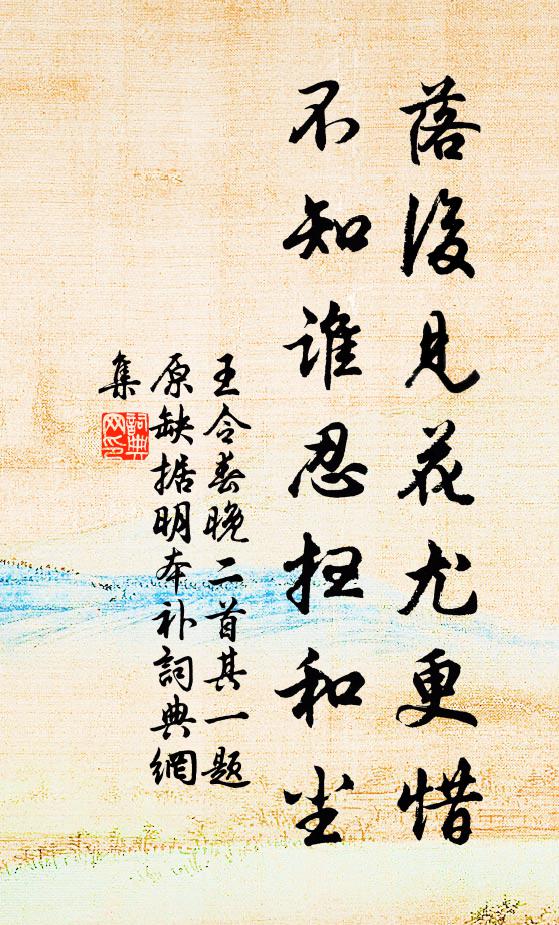 落後見花尤更惜
不知谁忍扫和尘
王令春晚二首其一题
原缺据明本补詞典網
集
詞典
网印